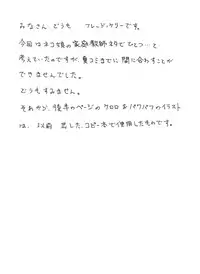 みなさん どうも フレッド・ケリーです。
今回はネコ娘の家庭教師ネタでひとつ…と
考えていたのですが、夏コミまでに間に合わすことが
できませんでした。
どうもすみません。
そのかわり、後半のページのケロロ＆パワパフのイラスト
は、以前 出した、コピー本で使用したものです。